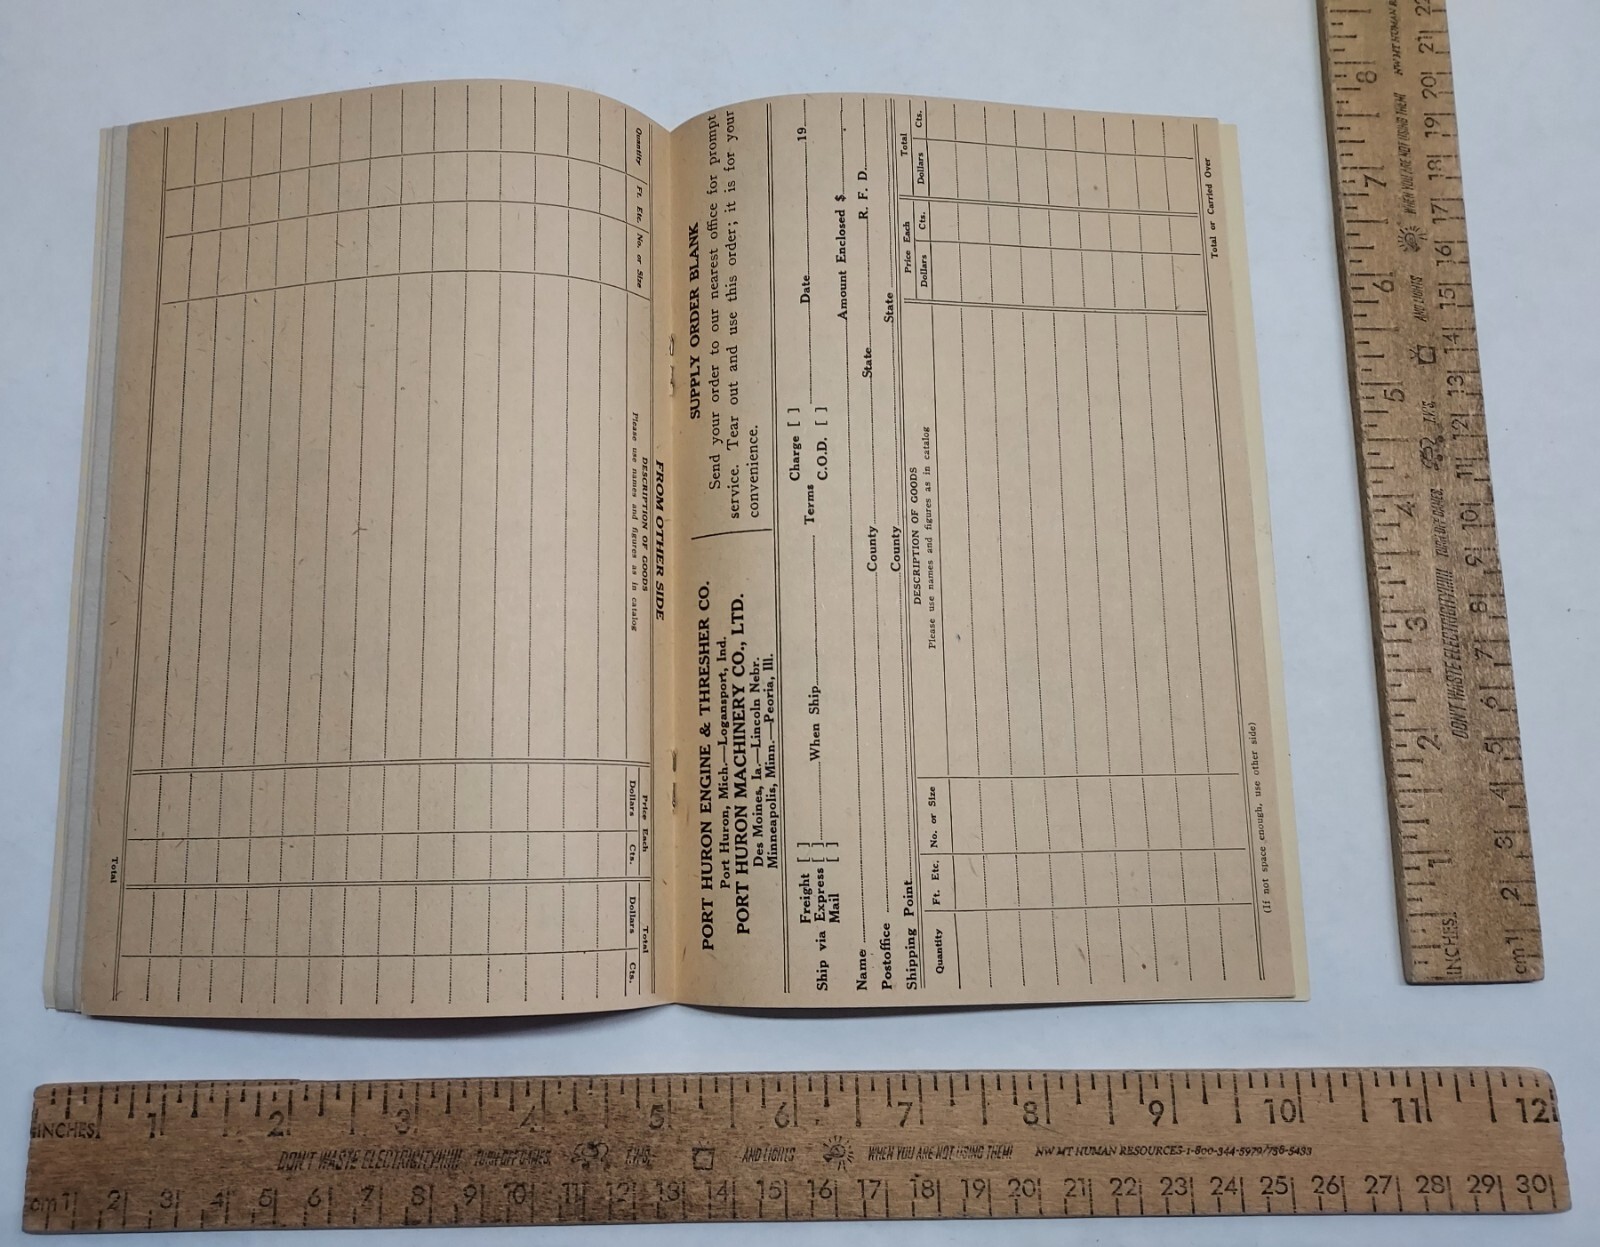 FROM OTHER SIDE
DESCRIPTION OF GOODS
Please use names and figures as in catalog
Quantity
Ft. Etc.
No. or Size
Price Each
Dollars
Cts.
Total
Dollars
Cts.
Total
PORT HURON ENGINE & THRESHER CO.
Port Huron, Mich.—Logansport, Ind.
PORT HURON MACHINERY CO., LTD.
Des Moines, Ia.—Lincoln Nebr.
Minneapolis, Minn.—Peoria, Ill.
SUPPLY ORDER BLANK
Send your order to our nearest office for prompt
service. Tear out and use this order; it is for your
convenience.
Freight [ ]
Ship via Express [ ] When Ship Terms Charge [ ] Date 19
Mail [ ] C.O.D. [ ]
Amount Enclosed $
Name County State R. F. D.
Postoffice County State
Shipping Point
Quantity
Ft. Etc.
No. or Size
DESCRIPTION OF GOODS
Please use names and figures as in catalog
Price Each
Dollars
Cts.
Total
Dollars
Cts.
Total or Carried Over
(If not space enough, use other side)
INCHES 1 2 3 4 5 6 7 8
DON'T WASTE ELECTRICITY!!!!! TURN OFF GAMES, T.V.'S, AND LIGHTS WHEN YOU ARE NOT USING THEM! NW MT HUMAN
cm 1 2 3 4 5 6 7 8 9 10 11 12 13 14 15 16 17 18 19 20 21 22
INCHES 1 2 3 4 5 6 7 8 9 10 11 12
DON'T WASTE ELECTRICITY!!!!! TURN OFF GAMES, T.V.'S, AND LIGHTS WHEN YOU ARE NOT USING THEM! NW MT HUMAN RESOURCES-1-800-344-5979/758-5433
cm 1 2 3 4 5 6 7 8 9 10 11 12 13 14 15 16 17 18 19 20 21 22 23 24 25 26 27 28 29 30